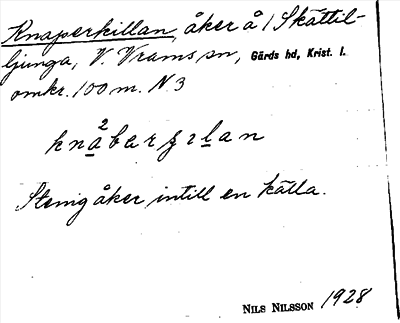 Knaperkillan, åker å 1 Skättil-
ljunga, V. Vrams sn, Gärds hd, Krist. l.
omkr. 100 m. N 3
knabarʒılan
Stenig åker intill en källa.
NILS NILSSON 1928